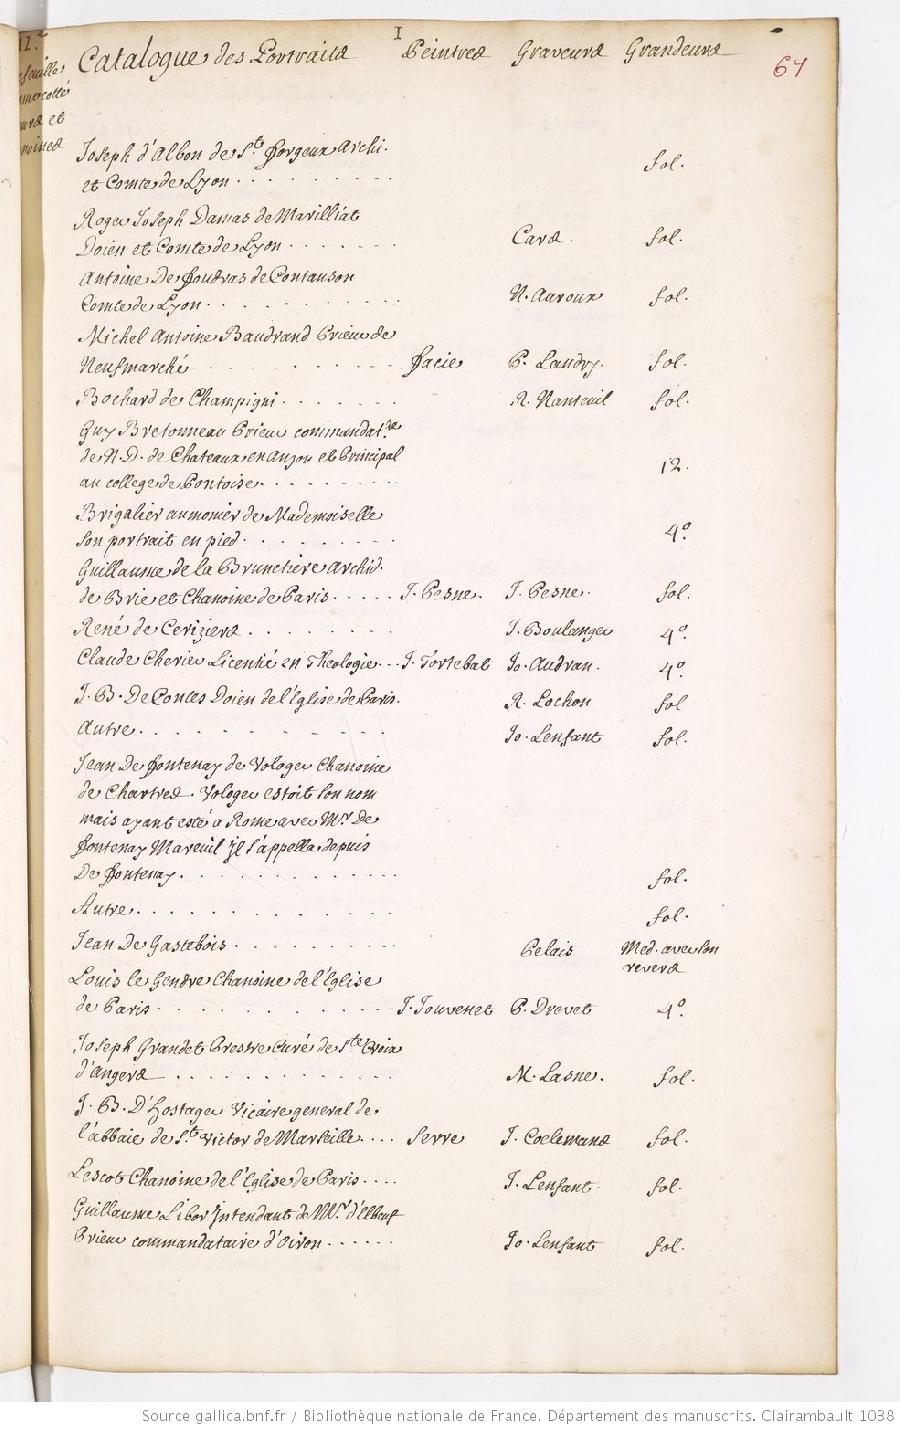 I
Catalogue des Portraits Peintres Graveurs Grandeurs
67
Joseph d'Albon de St. Forgeux Archi.
et Comte de Lyon . . . . . . . . fol.
Roger Joseph Damas de Marilliat
Doien et Comte de Lyon . . . . . . Cars fol.
Antoine De Foudras de Contanson
Comte de Lyon . . . . . . . . . N. Auroux fol.
Michel Antoine Baudrand Prieur de
Neufmarché . . . . . . . . Facie P. Landry. fol.
Bochard de Champigni . . . . . . R. Nanteuil fol.
Guy Bretonneau Prieur commandat.re
de N. D. de Chateaux en Anjou et Principal
au college de Pontoise . . . . . . . 12.
Brigalier aumonier de Mademoiselle
son portrait en pied . . . . . . . . 4.o
Guillaume de la Brunetiere Archid.
de Brie et Chanoine de Paris . . . . . J. Pesne. J. Pesne. fol.
René de Ceriziers . . . . . . . . J. Boulanger 4.o
Claude Cherier Licentié en Theologie . . . J. Tortebat Jo. Audran. 4.o
J. B. De Contes Doien de l'Eglise de Paris. R. Lochon fol
Autre . . . . . . . . . . . Jo. Lenfant fol.
Jean De Fontenay de Vologer Chanoine
de Chartres. Vologer estoit son nom
mais ayant esté a Rome avec Mr. De
Fontenay Mareuil Jl s'appella depuis
De Fontenay . . . . . . . . . . fol.
Autre . . . . . . . . . . . . fol.
Jean De Gastebois . . . . . . . . Pelais Med. avec son
revers
Louis le Gendre Chanoine de l'Eglise
de Paris . . . . . . . . . . J. Jouvenet P. Drevet 4.o
Joseph Grandet Prestre Curé de Ste Croix
d'Angers . . . . . . . . . . M. Lasne. fol.
J. B. D'Hostager Vicaire general de
l'abbaie de St. Victor de Marseille . . . . Serre J. Coelemans fol.
Lescot Chanoine de l'Eglise de Paris . . . . J. Lenfant fol.
Guillaume Libor Jntendant de Mr. d'Elbeuf
Prieur commandataire d'Oiron . . . . . . Jo. Lenfant fol.
Source gallica.bnf.fr / Bibliothèque nationale de France. Département des manuscrits. Clairambault 1038